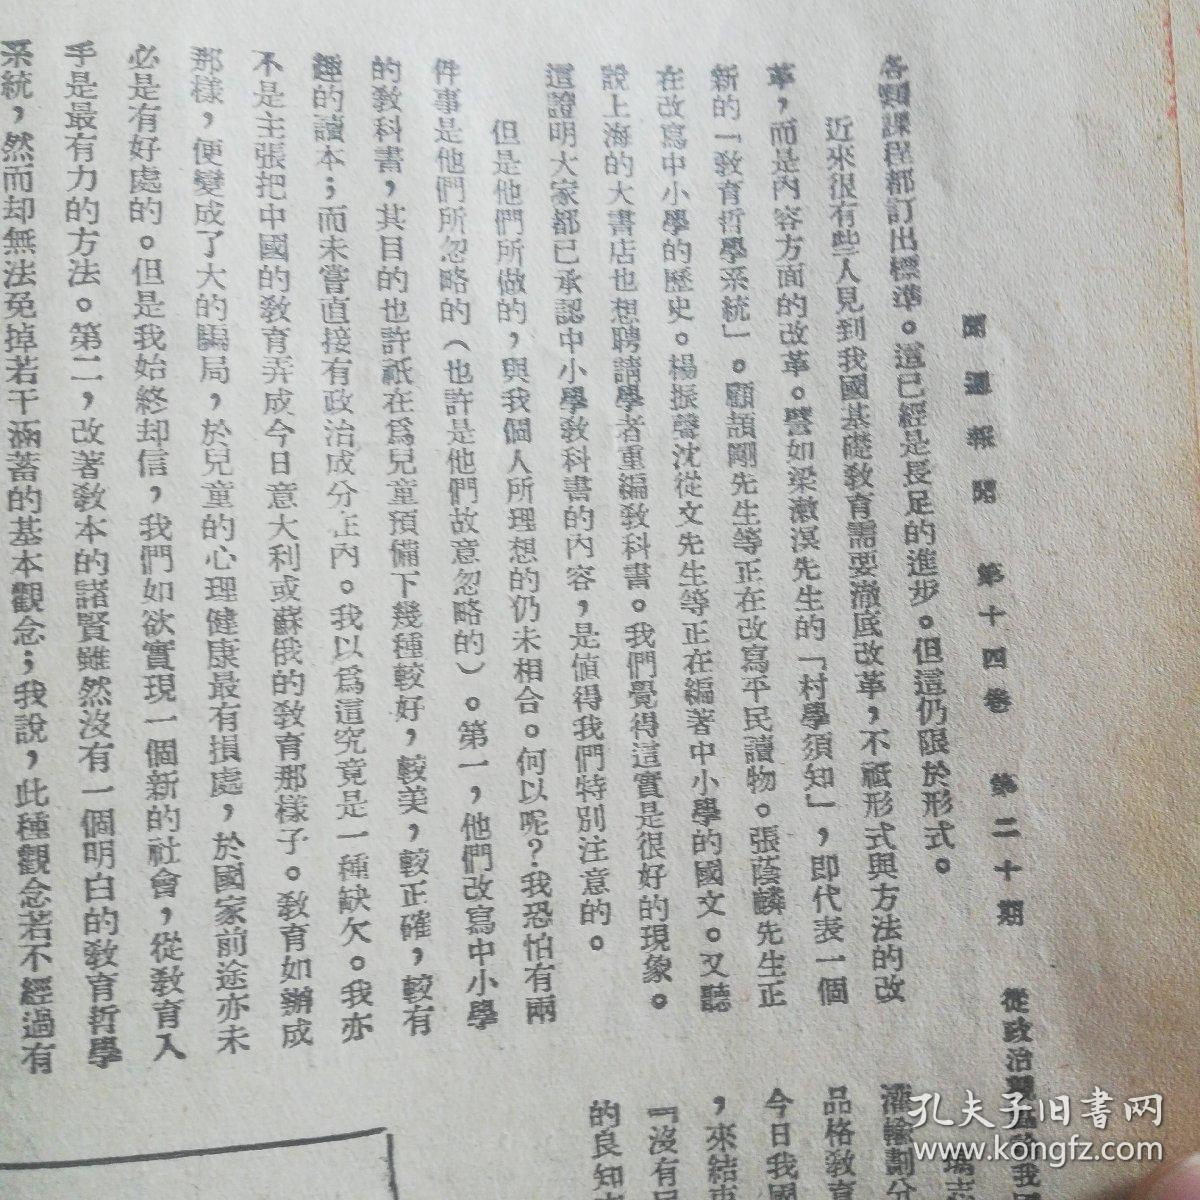 聞週報 第十四卷 第二十期 從政治
各類課程都訂出標準。這已經是長足的進步。但這仍限於形式。
近來很有些人見到我國基礎教育需要澈底改革，不祇形式與方法的改
革，而是內容方面的改革。譬如梁漱溟先生的「村學須知」，即代表一個
新的「教育哲學系統」。顧頡剛先生等正在改寫平民讀物。張蔭麟先生正
在改寫中小學的歷史。楊振聲沈從文先生等正在編著中小學的國文。又聽
說上海的大書店也想聘請學者重編教科書。我們覺得這實是很好的現象。
這證明大家都已承認中小學教科書的內容，是值得我們特別注意的。
但是他們所做的，與我個人所理想的仍未相合。何以呢？我恐怕有兩
件事是他們所忽略的（也許是他們故意忽略的）。第一，他們改寫中小學
的教科書，其目的也許祇在爲兒童預備下幾種較好，較美，較正確，較有
趣的讀本；而未嘗直接有政治成分在內。我以爲這究竟是一種缺欠。我亦
不是主張把中國的教育弄成今日意大利或蘇俄的教育那樣子。教育如辦成
那樣，便變成了大的騙局，於兒童的心理健康最有損處，於國家前途亦未
必是有好處的。但是我始終却信，我們如欲實現一個新的社會，從教育入
手是最有力的方法。第二，改著教本的諸賢雖然沒有一個明白的教育哲學
系統，然而却無法免掉若干涵蓄的基本觀念；我說，此種觀念若不經過有
灌輸劃分
品格教育
今日我國
，來結束
『沒有
的良知
孔夫子旧书网
www.kongfz.com